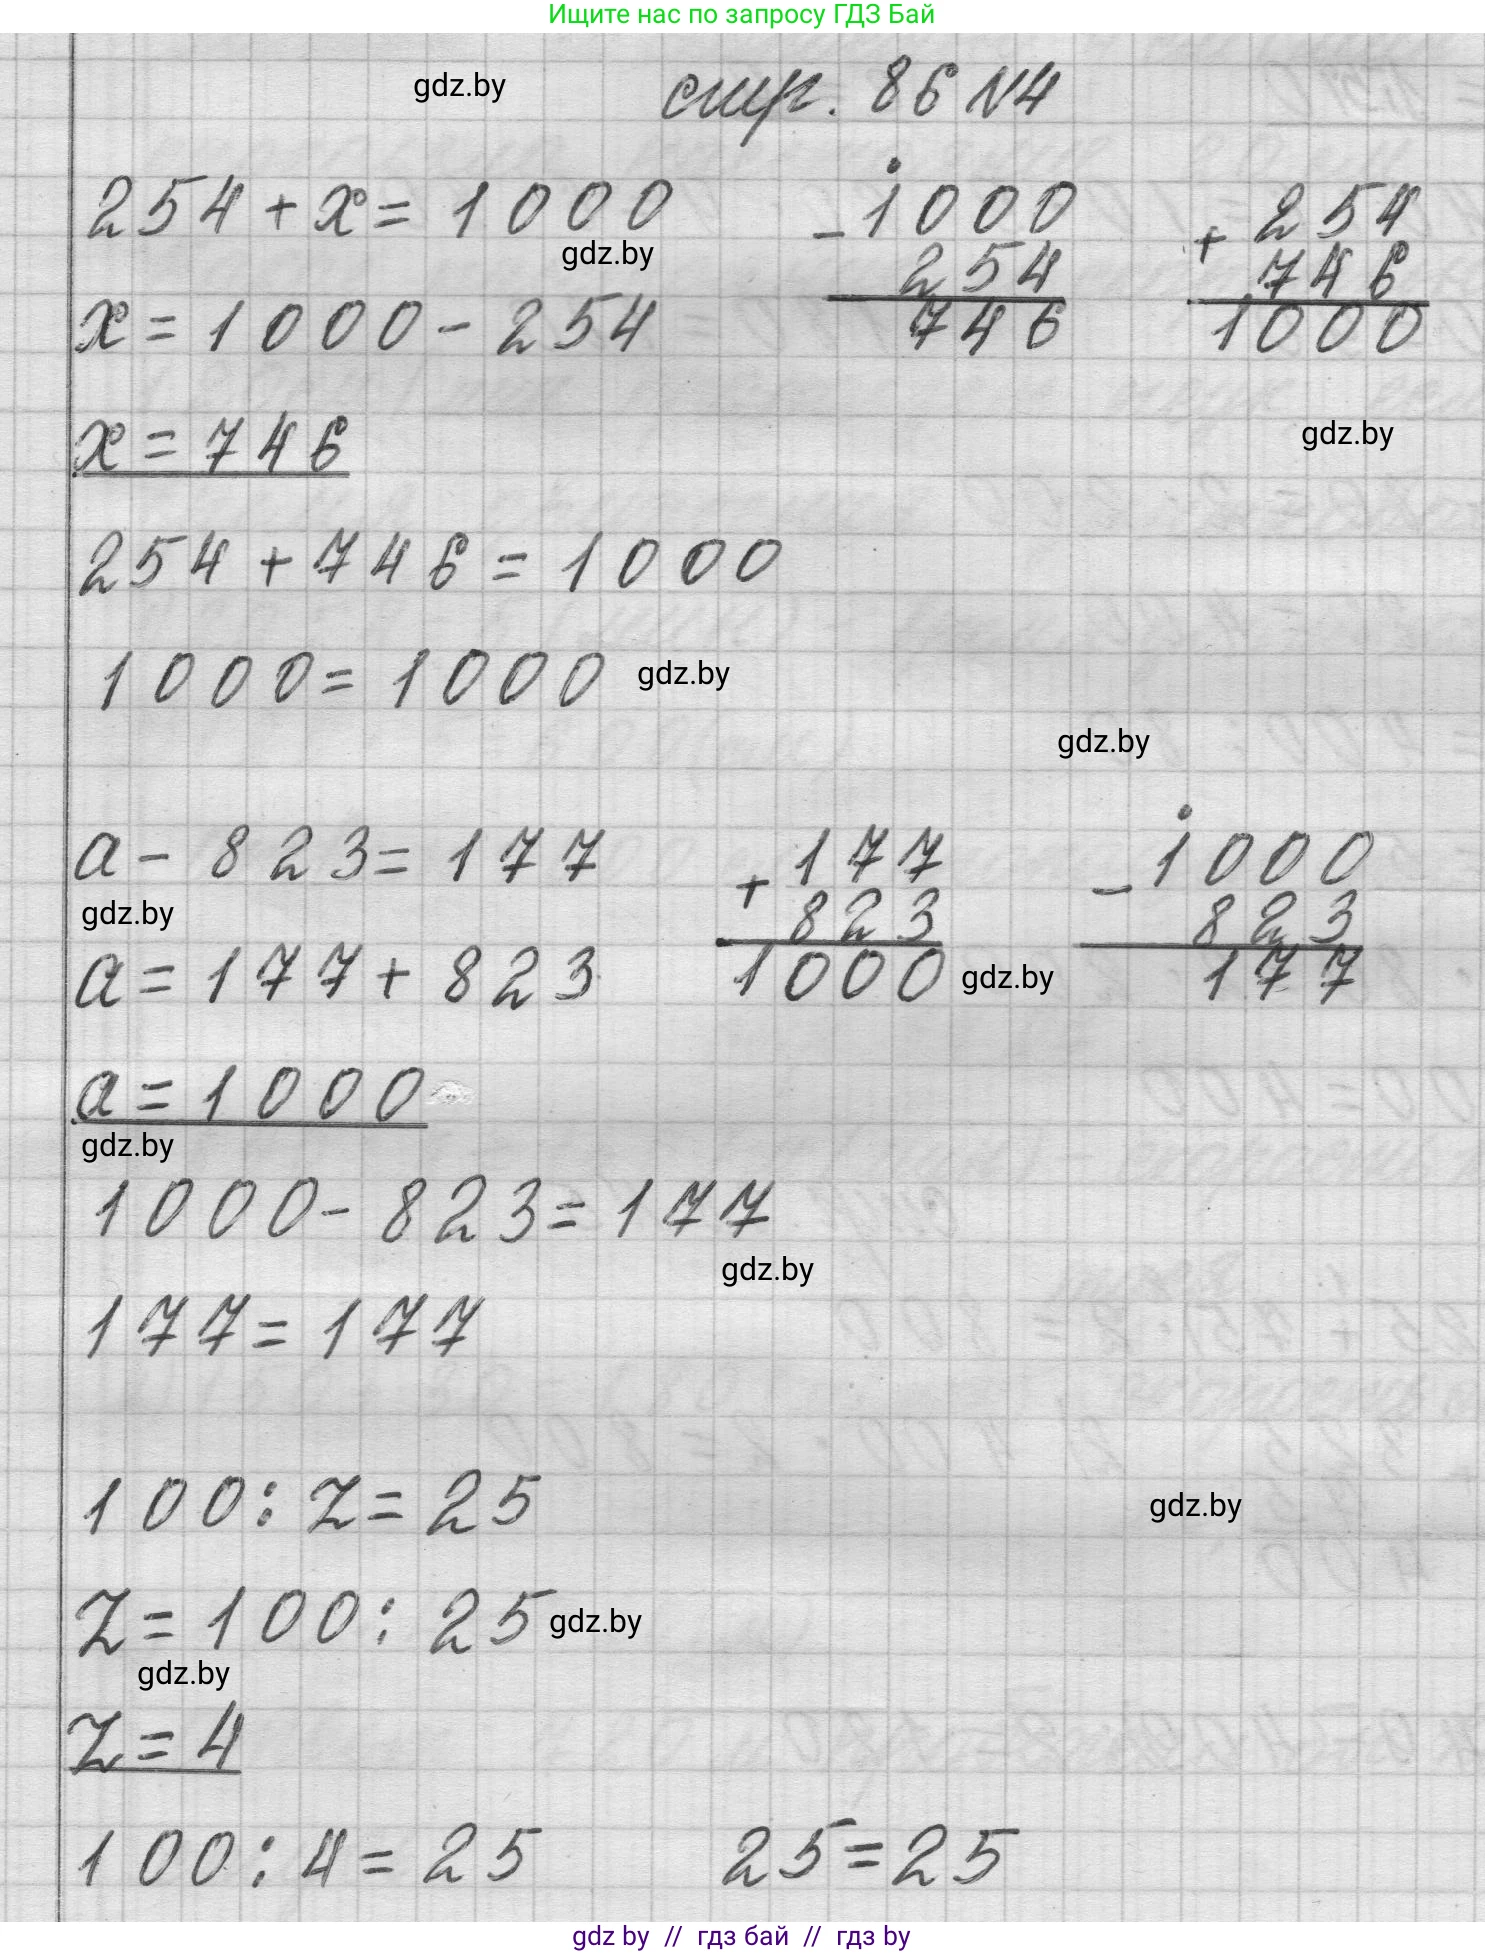 Ищите нас по запросу ГДЗ Бай
gdz.by
стр. 86 №4
254 + x = 1000
gdz.by
- 1000
254
746
+ 254
746
1000
x = 1000 - 254
x = 746
gdz.by
254 + 746 = 1000
1000 = 1000
gdz.by
gdz.by
a - 823 = 177
gdz.by
+ 177
823
1000
gdz.by
- 1000
823
177
a = 177 + 823
a = 1000
gdz.by
1000 - 823 = 177
gdz.by
177 = 177
100 : z = 25
gdz.by
z = 100 : 25
gdz.by
gdz.by
z = 4
100 : 4 = 25 25 = 25
gdz by // гдз бай // гдз by